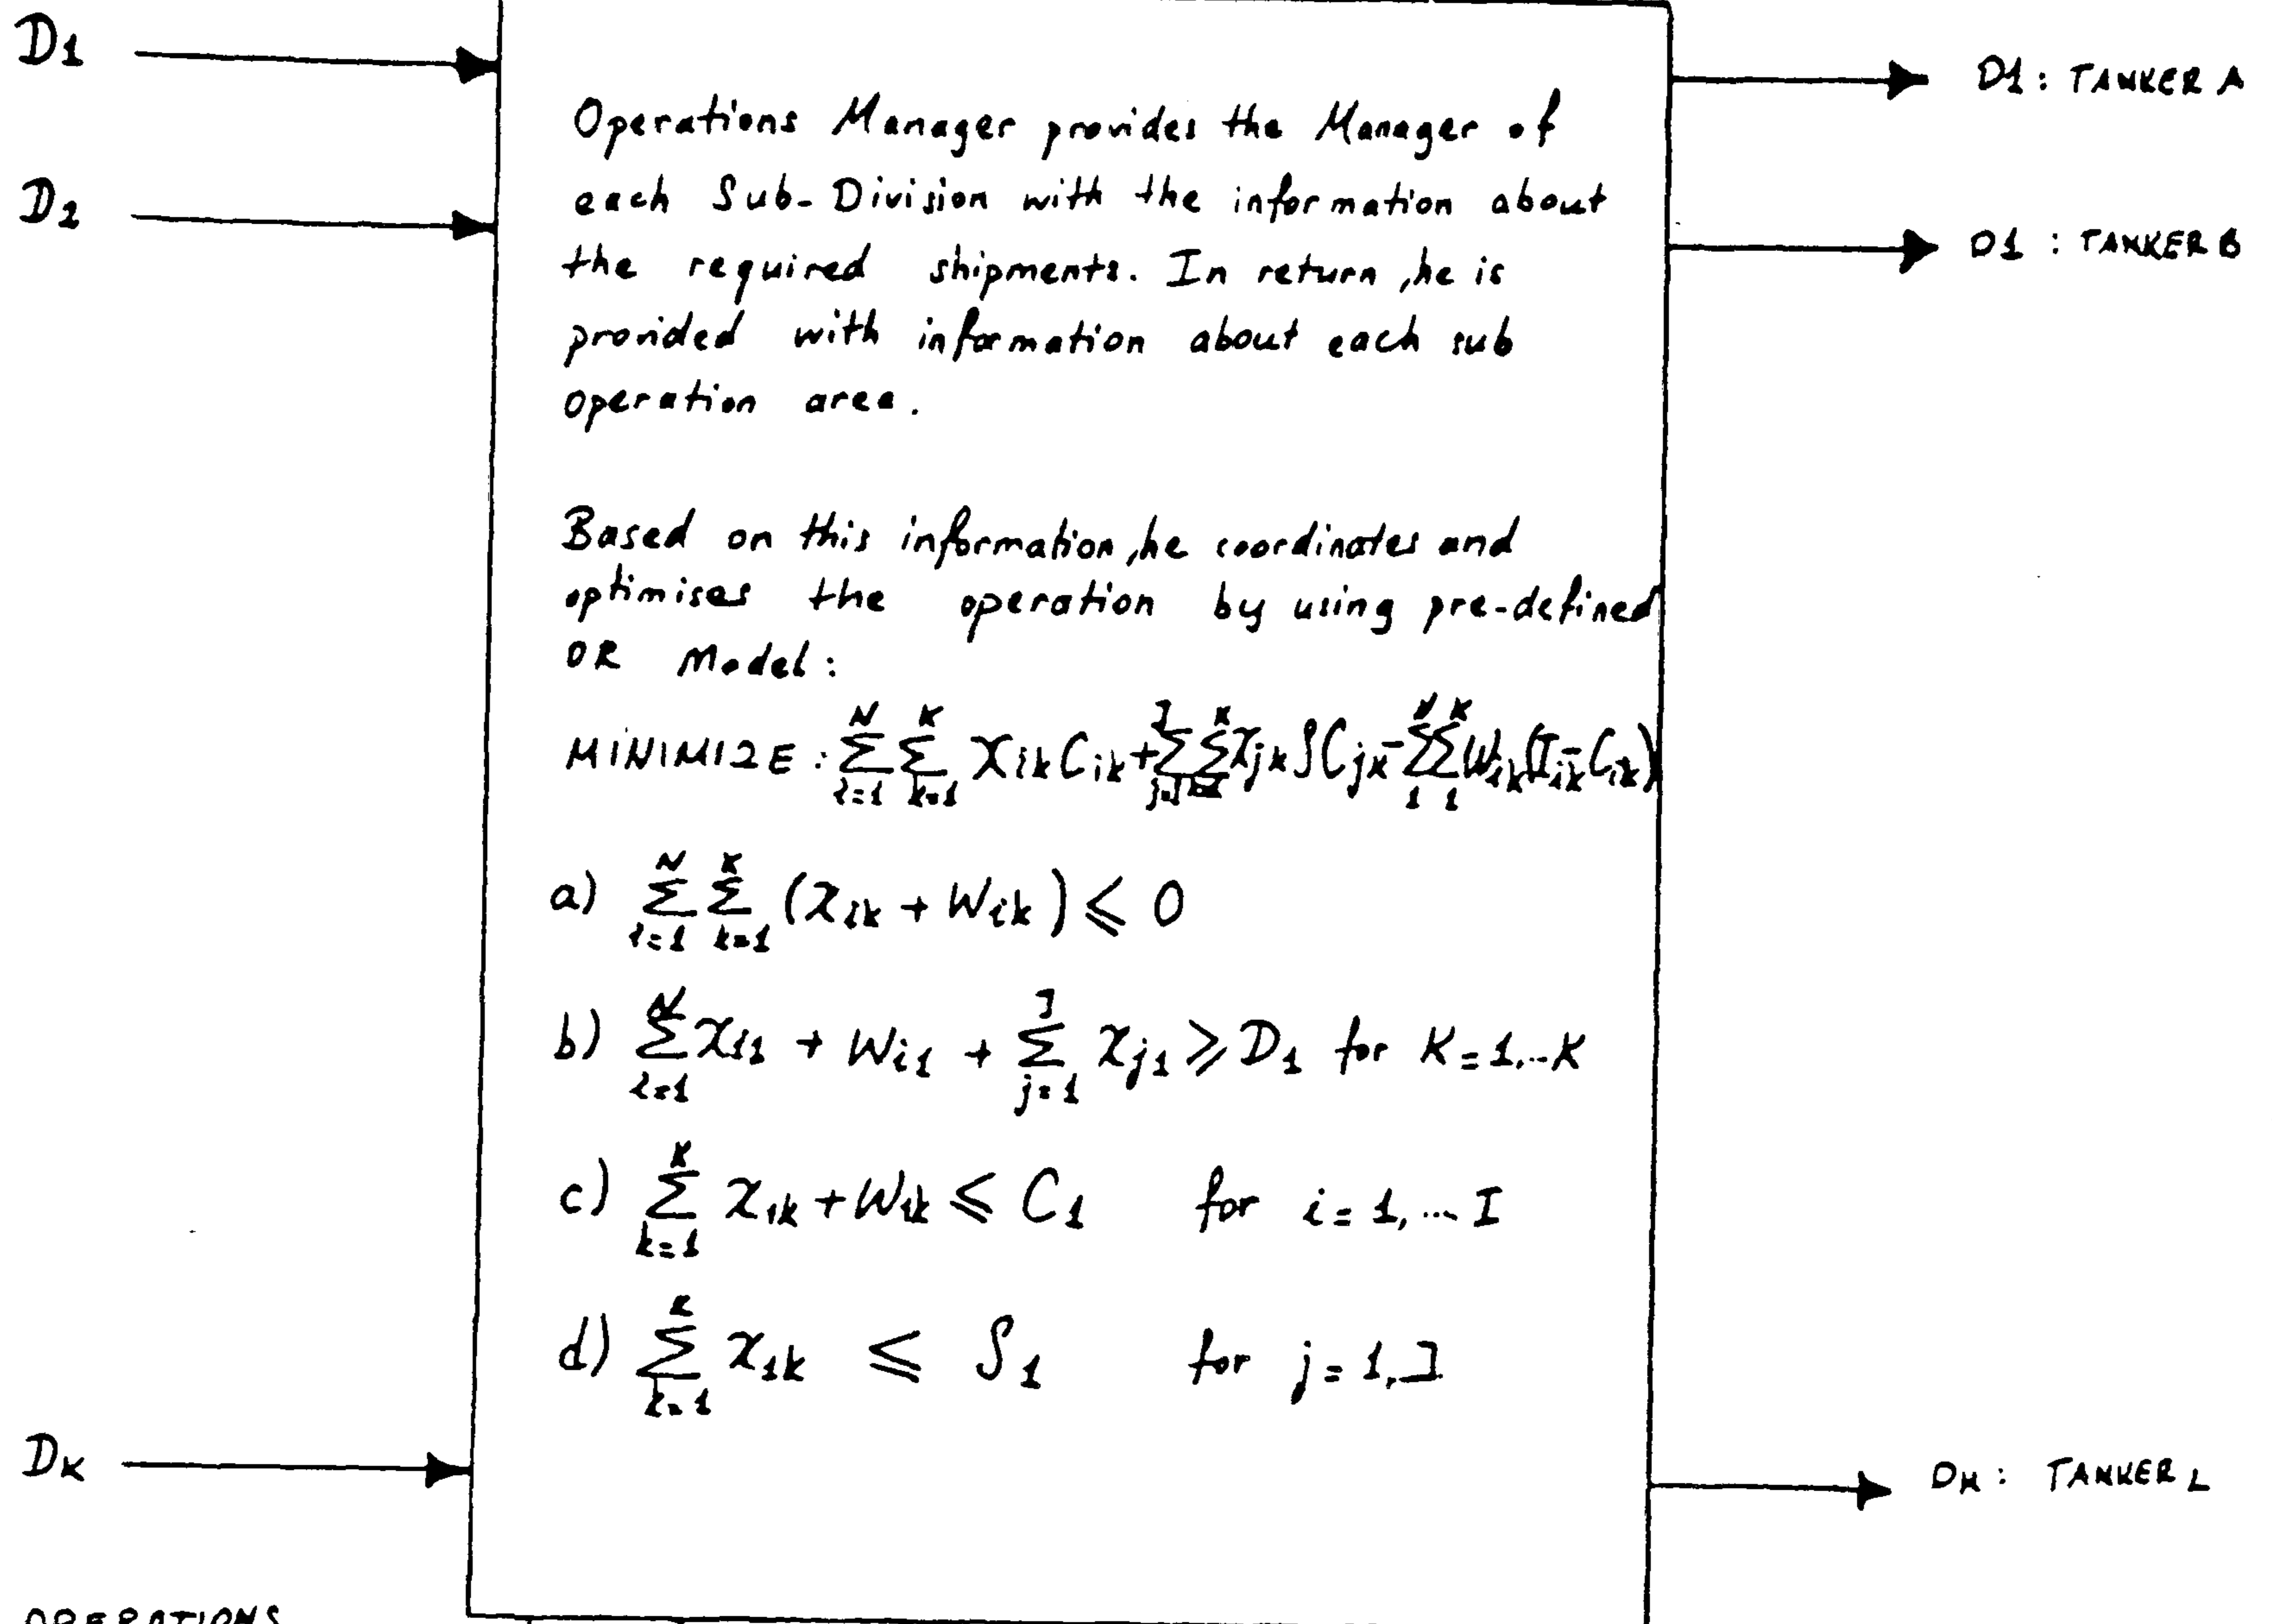 D1
D2
DK
Operations Manager provides the Manager of
each Sub-Division with the information about
the required shipments. In return, he is
provided with information about each sub
operation area.
Based on this information, he coordinates and
optimises the operation by using pre-defined
OR Model:
MINIMIZE : \sum_{i=1}^{N} \sum_{k=1}^{K} X_{ik} C_{ik} + \sum_{j=1}^{J} \sum_{k=1}^{K} X_{jk} SC_{jk} - \sum_{1}^{N} \sum_{1}^{K} W_{ik} (I_{ik} - C_{ik})
a) \sum_{i=1}^{N} \sum_{k=1}^{K} (X_{ik} + W_{ik}) ≤ 0
b) \sum_{i=1}^{N} X_{i1} + W_{i1} + \sum_{j=1}^{J} X_{j1} ≥ D_1 for K=1,..K
c) \sum_{k=1}^{K} X_{1k} + W_{1k} ≤ C_1 for i=1,...I
d) \sum_{k=1}^{K} X_{1k} ≤ S_1 for j=1,J
D1 : TANKER A
D1 : TANKER B
DK : TANKER L
OPERATIONS